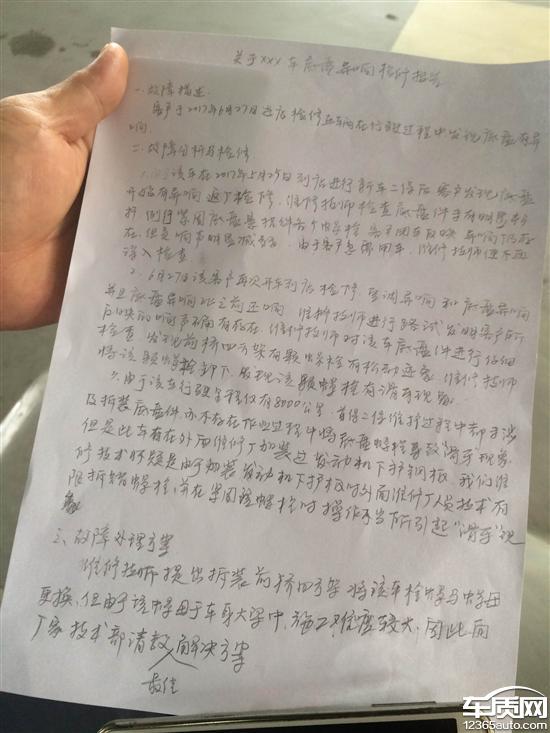 关于xxx车底盘异响检修报告
一、故障描述
客户于2017年6月27日进店检修且车辆在行驶过程中发现底盘有异
响
二、故障分析与检修
1.该车在2017年5月29日到店进行新车二保后客户发现底盘
开始有异响返厂检修,维修技师检查底盘件未有明显
底盘悬挂件各个螺栓
在但是响声明显减弱,由于客户急需用车,维修技师便不再
深入检查
2、6月27日该客户再次开车到店检修,强调异响和底盘异响
并且底盘异响比之前还响 维修技师进行路试发现客户所
反映的响声不确有存在,维修技师对该车底盘件进行仔细
检查 发现前桥四方架有颗螺栓有松动迹象,维修技师
将该颗螺栓卸下,发现该颗螺栓有滑牙现象
3.由于该车行驶里程仅有8000公里,首保二保维护过程中却未涉
及拆装底盘件亦不存在作业过程中将底盘螺栓导致“滑牙”现象
但是此车有在外面维修厂加装过发动机下护钢板,我们维
修技术怀疑是由于加装发动机下护板时外面维修厂人员技术有
限拆错螺栓,并在紧固该螺栓时操作不当所引起“滑牙”现
象
三、故障处理方案
维修技师提出拆装前桥四方架将该车栓螺与螺母
更换,但由于该螺母于车身大梁中,施工难度较大,因此向
厂家技术部请教最佳解决方案
车质网
12365auto.com